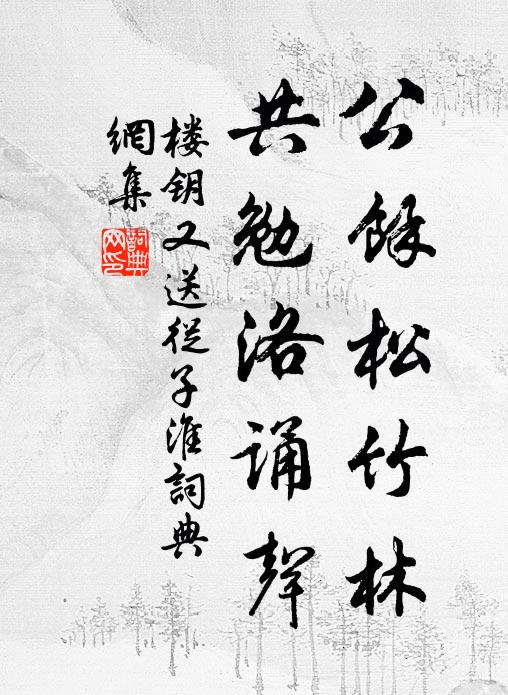 公餘松竹林
共勉洛诵聲
楼钥又送從子淮詞典
網集
詞典
网印